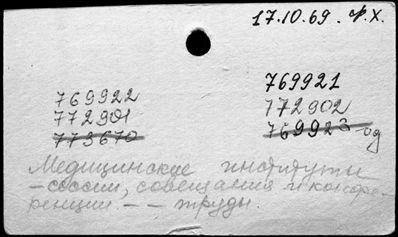 17.10.69. Ф.Х.
769922 769921
772901 772902
773670 769923 од
Медицинские институты
- сессии, совещания и конфе-
ренции - - труды.